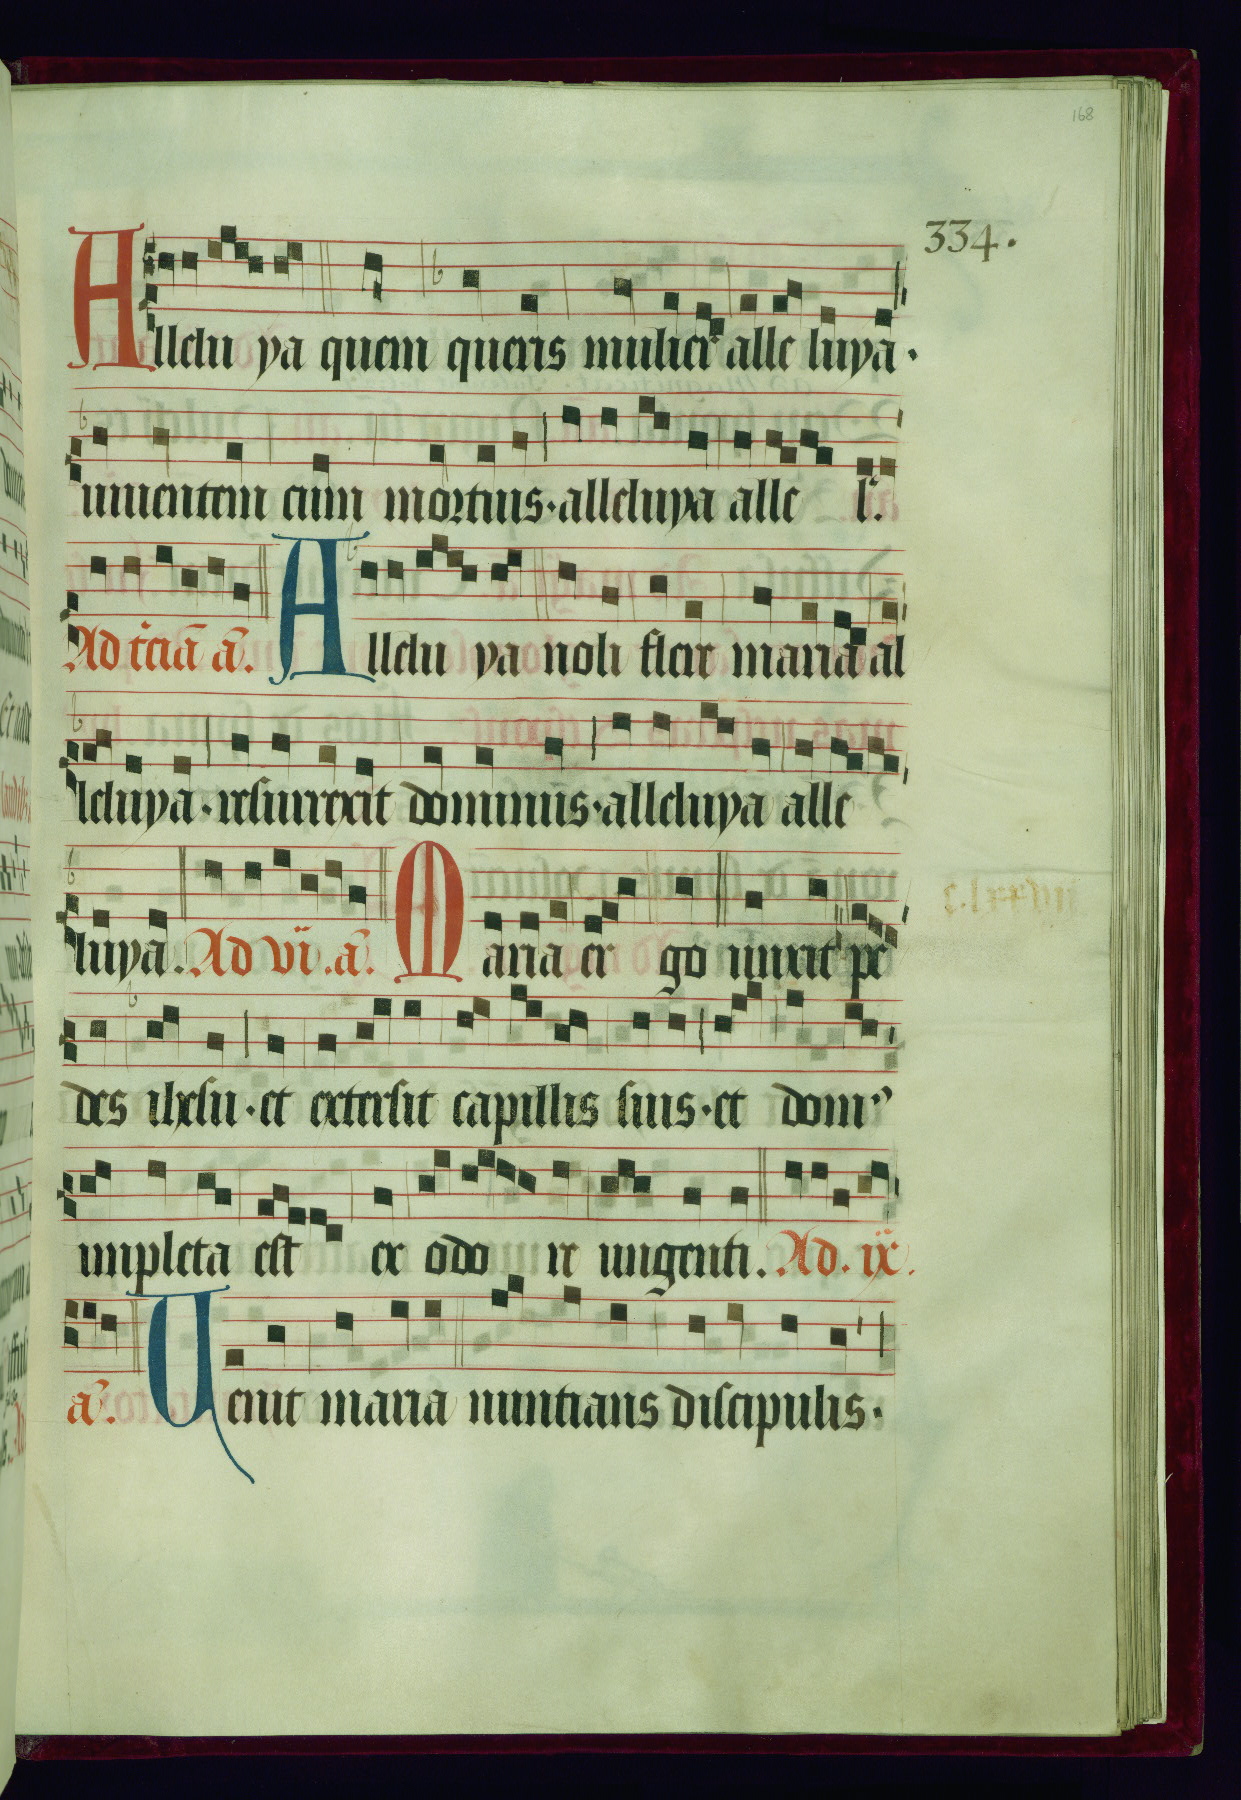 168
334.
Allelu ya quem queris mulier alle luya.
uiuentem cum mortuis. alleluya alle l'.
Ad t'ciā ā. Allelu ya noli flere maria al
leluya. resurrexit dominus. alleluya alle
luya. Ad vi. ā. Maria er go unxit pe
des ihesu. et extersit capillis suis. et dom⁹
impleta est ex odo re ungenti. Ad. ix.
ā. Uenit maria nuntians discipulis.